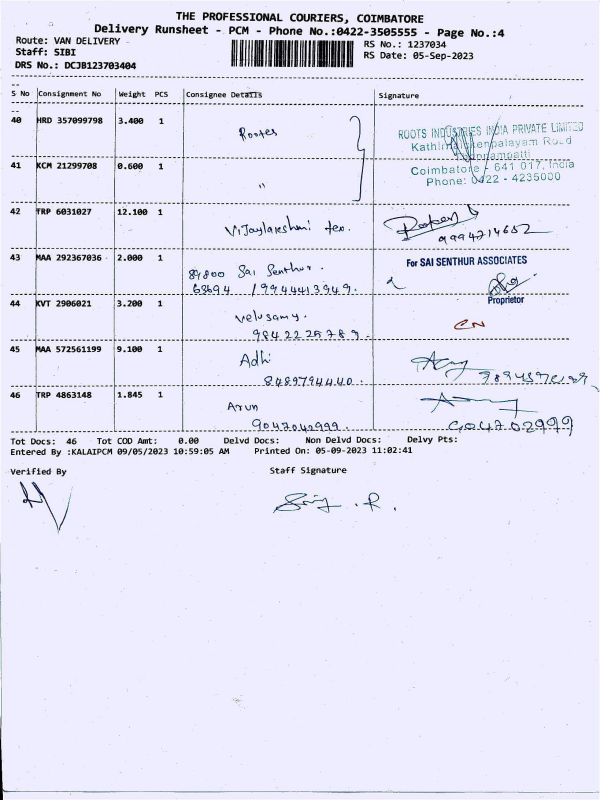 THE PROFESSIONAL COURIERS, COIMBATORE
Delivery Runsheet - PCM - Phone No.:0422-3505555 - Page No.:4
Route: VAN DELIVERY -
RS No.: 1237034
Staff: SIBI
RS Date: 05-Sep-2023
DRS No.: DCJB123703404
S No Consignment No Weight PCS Consignee Details Signature
40 HRD 357099798 3.400 1 Rootes
ROOTS INDUSTRIES INDIA PRIVATE LIMITED
41 KCM 21299708 0.600 1 "
Coimbatore - 641 017, India
Phone: 0422 - 4235000
42 TRP 6031027 12.100 1 Vijaylakshmi tex.
9994714652
43 MAA 292367036 2.000 1 Sai Senthur.
63694 / 9944413949.
For SAI SENTHUR ASSOCIATES
Proprietor
44 KVT 2906021 3.200 1 velusamy.
9842225789.
CN
45 MAA 572561199 9.100 1 Adhi
8489794440.
46 TRP 4863148 1.845 1 Arun
9047042999.
Tot Docs: 46 Tot COD Amt: 0.00 Delvd Docs: Non Delvd Docs: Delvy Pts:
Entered By :KALAIPCM 09/05/2023 10:59:05 AM Printed On: 05-09-2023 11:02:41
Verified By Staff Signature